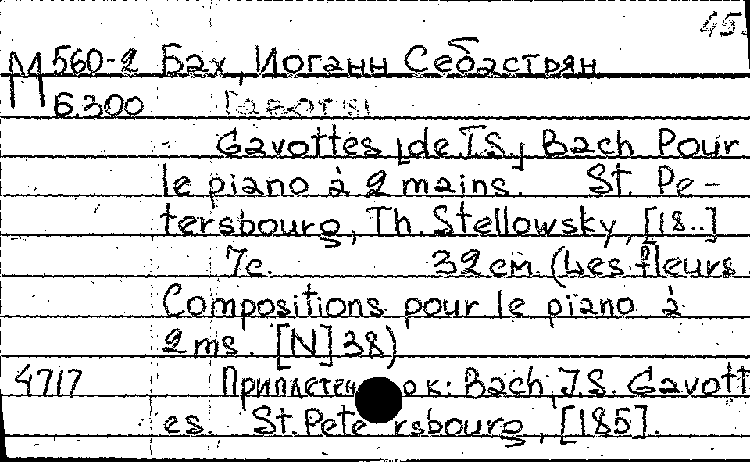 45.
М 560-2 Бах, Иоганн Себастьян
6.300 Гавоты
Gavottes [de J.S.] Bach Pour
le piano à 2 mains. St. Pe-
tersbourg, Th. Stellowsky, [18..]
7с. 32 см. (Les fleurs
Compositions pour le piano à
2 ms. [N] 38)
4717 Приплетено к: Bach, J.S. Gavott
es. St. Petersbourg, [185].